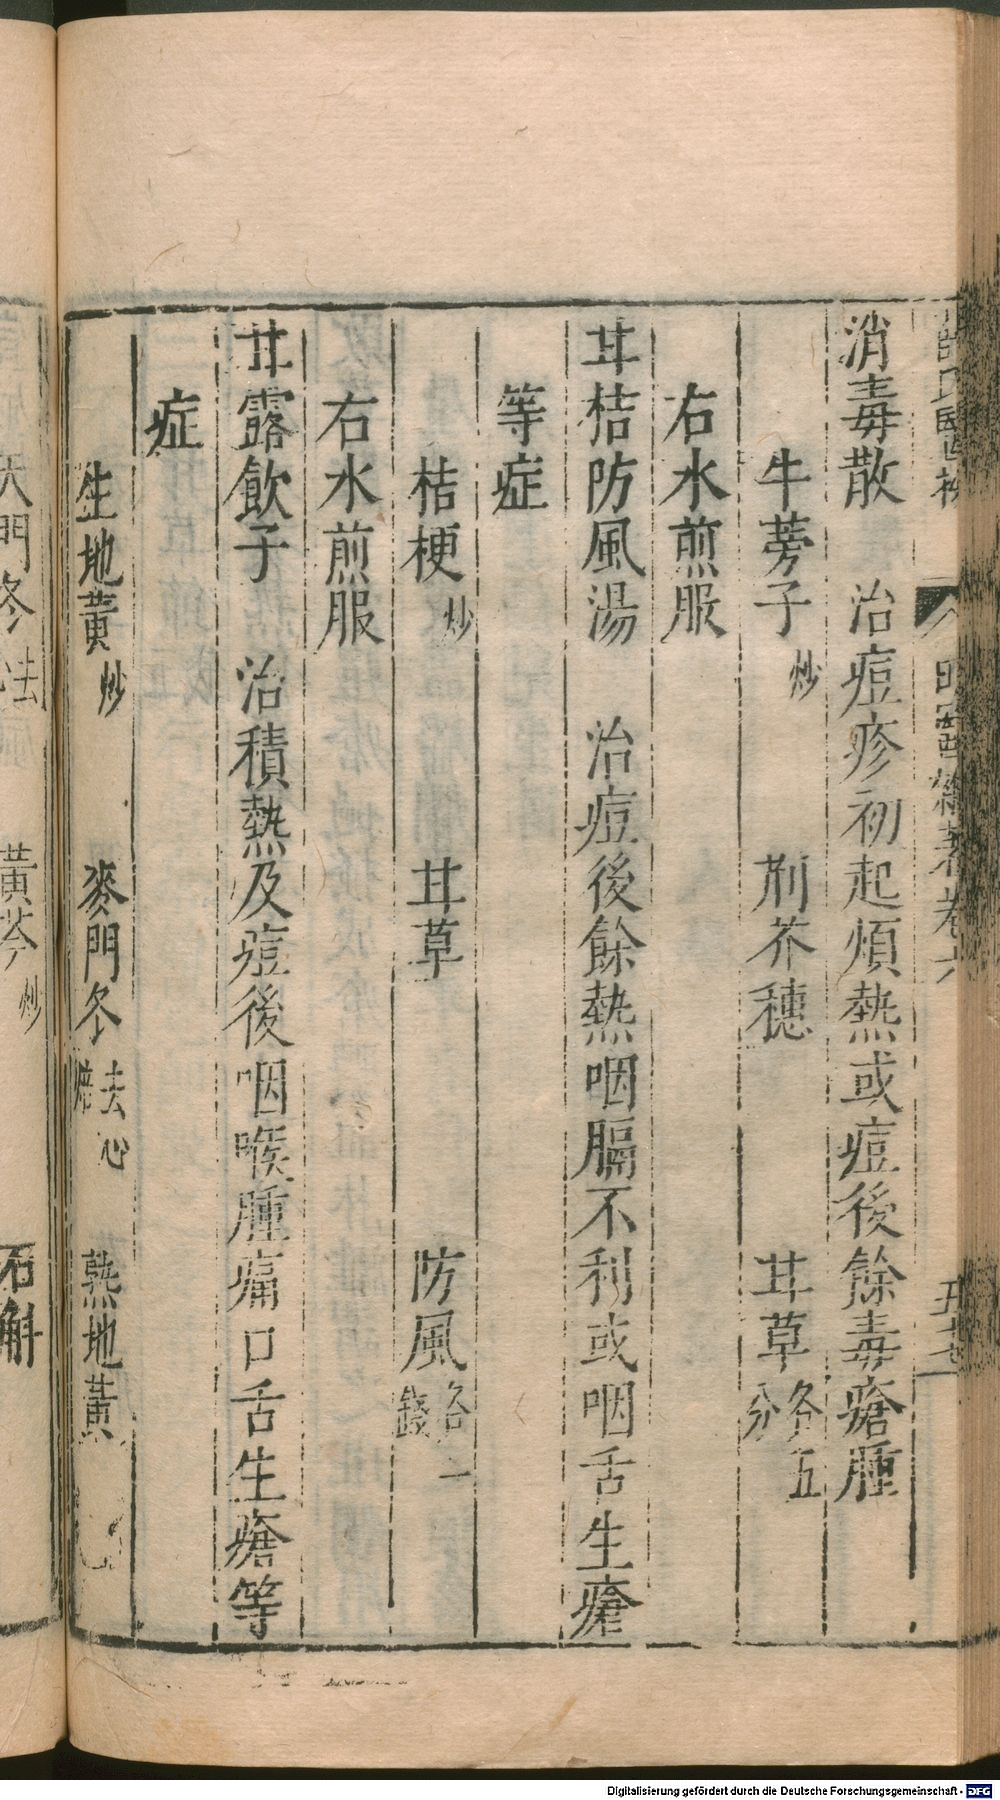 消毒散　治痘疹初起煩熱或痘後餘毒瘡腫
牛蒡子炒　荆芥穗　甘草各五分
右水煎服
甘桔防風湯　治痘後餘熱咽膈不利或咽舌生瘡
等症
桔梗炒　甘草　防風各一錢
右水煎服
甘露飲子　治積熱及痘後咽喉腫痛口舌生瘡等
症
生地黃炒　麥門冬去心焙　熟地黃
天門冬去　黃芩炒　石斛
Digitalisierung gefördert durch die Deutsche Forschungsgemeinschaft - DFG